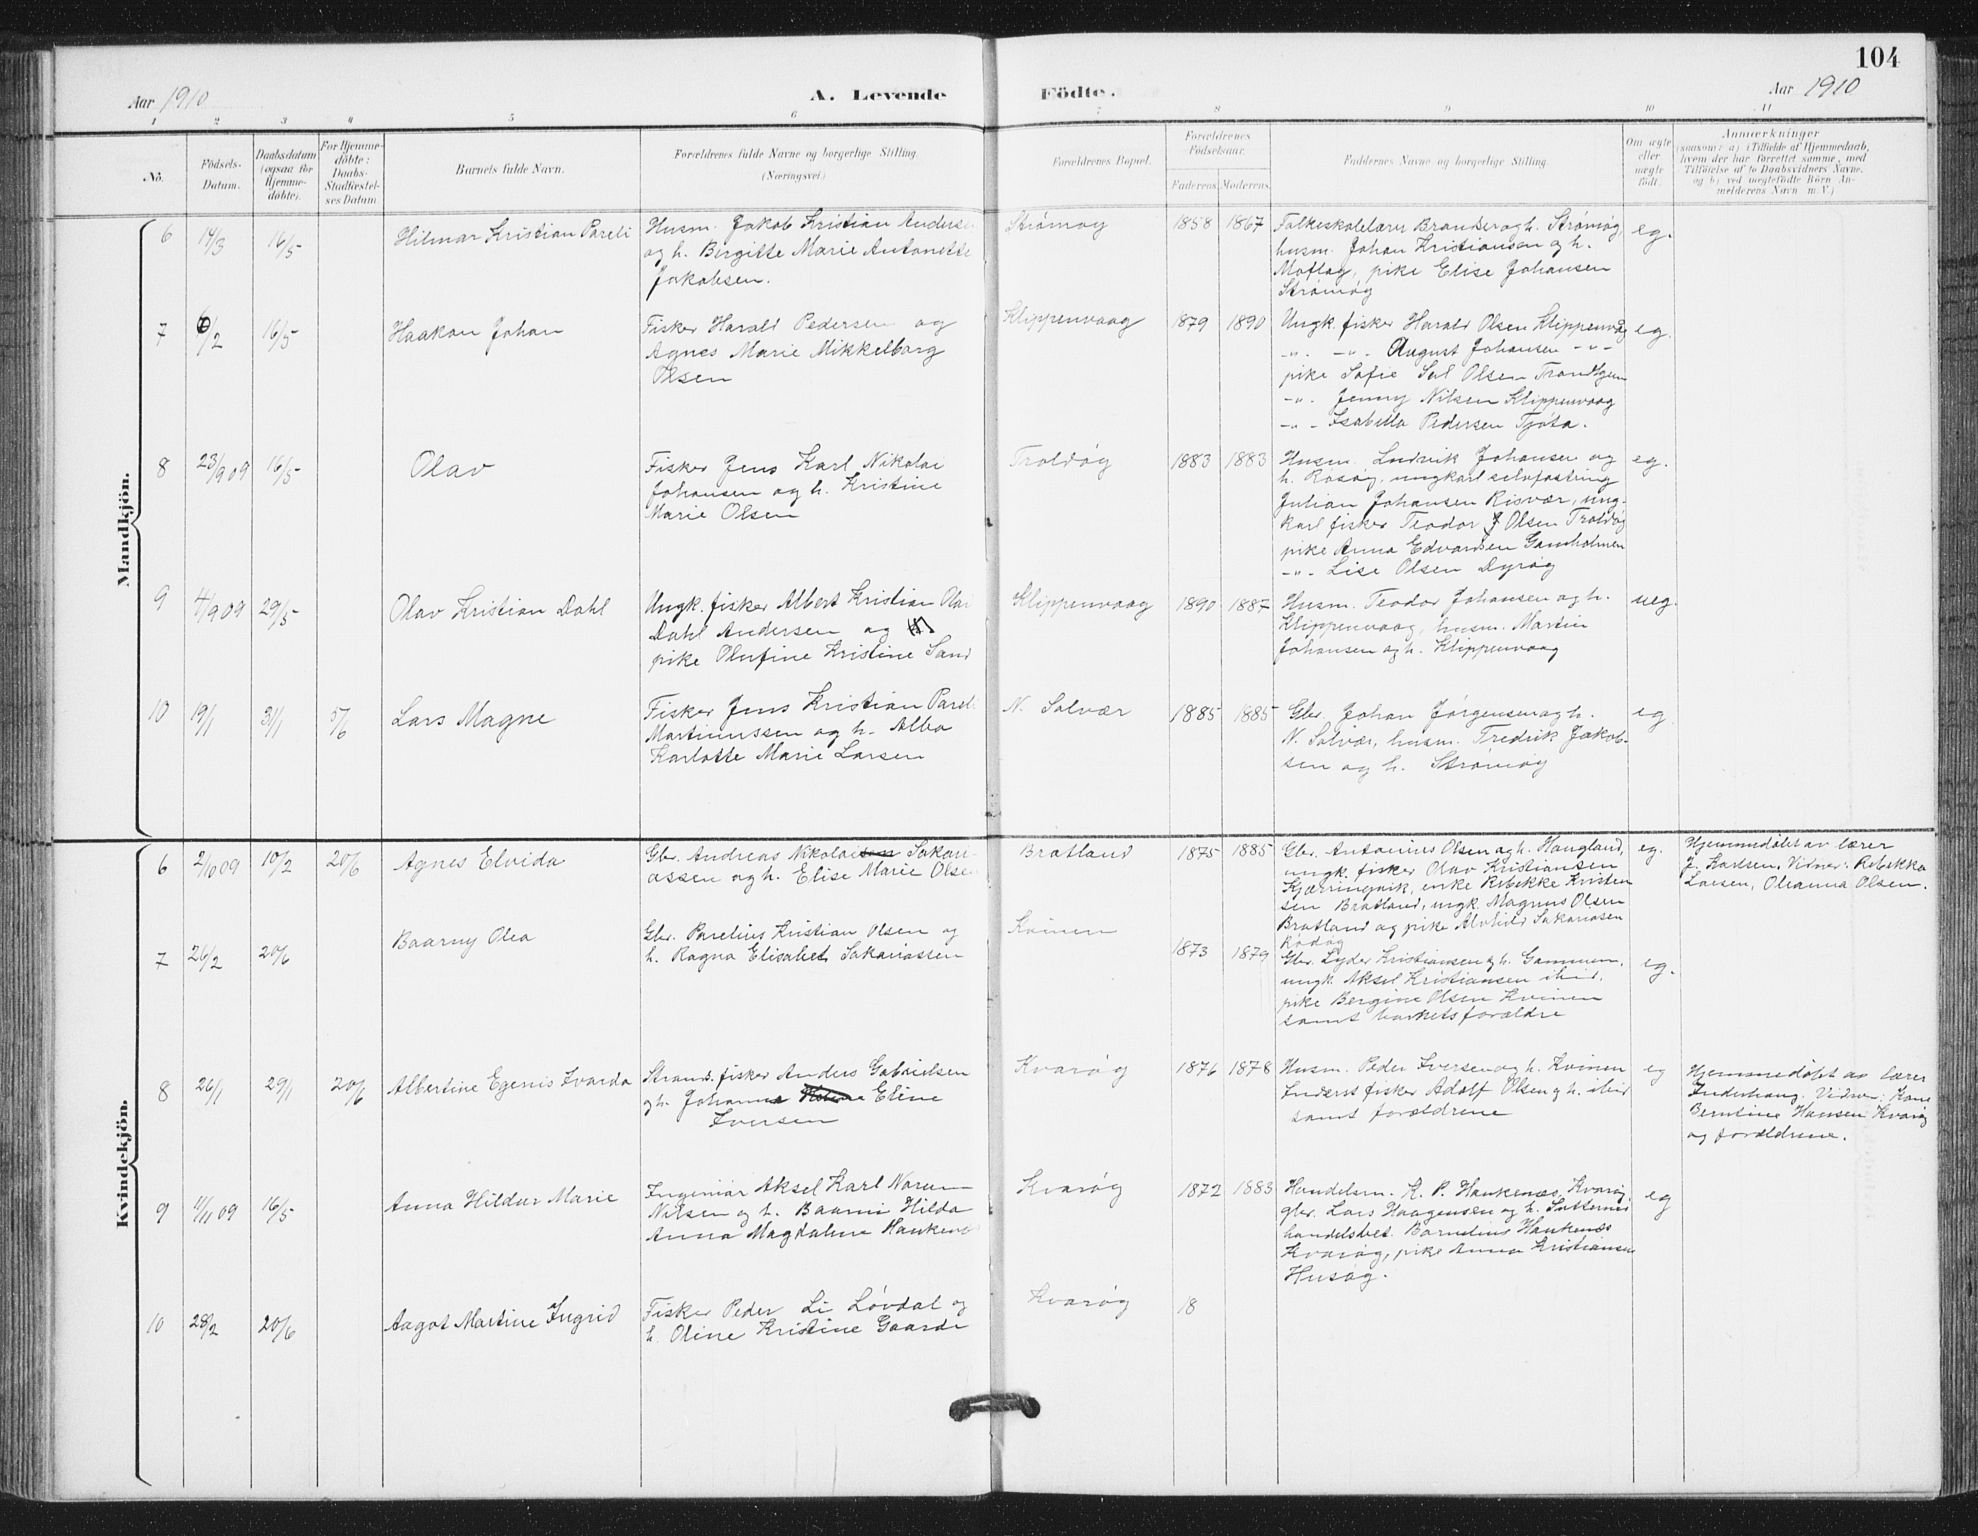 104
Aar 1910
A. Levende
Födte.
Aar 1910
1 2 3 4 5 6 7 8 9 10 11
No.
Födsels-
Datum.
Daabsdatum
(ogsaa for
Hjemme-
döbte).
For Hjemme-
döbte:
Daabs-
Stadfæstel-
ses Datum
Barnets fulde Navn.
Forældrenes fulde Navne og borgerlige Stilling.
(Næringsvei.)
Forældrenes Bopæl.
Forældrenes
Födselsaar.
Faderens. Moderens.
Faddernes Navne og borgerlige Stilling.
Om ægte
eller
uægte
födt.
Anmærkninger
(saasom: a) i Tilfælde af Hjemmedaab,
hvem der har forrettet samme, med
Tilföielse af to Daabsvidners Navne,
og b) ved uægtefödte Börn An-
melderens Navn m. V.)
Mandkjön.
6 14/3 16/5 Hilmar Kristian Pareli
Husm. Jakob Kristian Anders
og h. Birgitte Marie Antonette
Jakobsen.
Strømøy 1858 1867
Folkeskolelærer Brandser og h. Strømøy,
husm. Johan Kristiansen og h.
pike Elise Johansen
Strømøy
eg.
7 6/2 16/5 Haakon Johan
Fisker Harald Pedersen og
Agnes Marie Mikkelborg
Olsen
Klippenvaag 1879 1890
Ungk. fisker Harald Olsen Klippenvåg
-"- -"- August Johansen -"-
pike Sofie Olsen
-"- Jenny Nilsen Klippenvaag
-"- Isabella Pedersen Tjøta.
eg.
8 23/9 09 16/5 Olav
Fisker Jens Karl Nikolai
Johansen og h. Kristine
Marie Olsen
Troldøy 1883 1883
Husm. Ludvik Johansen og
h. Rasøy, ungkarl selvfostring
Julian Johansen Risvær, ung-
karl fisker Teodor J Olsen Troldøy
pike Anna Edvardsen Gamholmen
-"- Lise Olsen Dyrøy
eg.
9 4/9 09 29/5 Olav Kristian Dahl
Ungk. fisker Albert Kristian Olai
Dahl Andersen og
pike Olufine Kristine Sand
Klippenvaag 1890 1887
Husm. Teodor Johansen og h.
Klippenvaag, husm. Martin
Johansen og h. Klippenvaag
ueg.
10 19/1 31/1 5/6 Lars Magne
Fisker Jens Kristian Pareli
Martinussen og h. Alba
Karlotte Marie Larsen
N. Solvær 1885 1885
Gbr. Johan Jørgensen og h.
N. Solvær, husm. Fredrik Jakob-
sen og h. Strømøy
eg.
Kvindekjön.
6 2/10 09 10/2 20/6 Agnes Elvida
Gbr. Andreas Nikolaisen Sakari-
assen og h. Elise Marie Olsen
Bratland 1875 1885
Gbr. Antonius Olsen og h. Haugland,
ungk. fisker Olav Kristiansen
Kjærringvik, enke Rebekke Kristen
sen Bratland, ungk. Magnus Olsen
Bratland og pike Alvhild Sakariasen
Rødøy
eg.
Hjemmedøbt av lærer
J. Karlsen, Vidner: Rebekka
Larsen, Oleanna Olsen.
7 26/2 20/6 Baarny Olea
Gbr. Parelius Kristian Olsen og
h. Ragna Elisabet Sakariassen
Kvinen 1873 1879
Gbr. Lyder Kristiansen og h. Gammen,
ungk. Aksel Kristiansen ibid,
pike Bergine Olsen Kvinen
samt barnets forældre
eg.
8 26/1 29/1 20/6 Albertine Egenis Ivarda
Strands. fisker Anders Gabrielsen
og h. Johanna Eline
Iversen
Kvarøy 1876 1878
Husm. Peder Iversen og h. Kvinen
Inderst fisker Adolf Olsen og h. ibid
samt forældrene
eg
Hjemmedøbt av lærer
Inderhaug. Vidner: Kone
Berntine Hansen Kvarøy
og forældrene.
9 11/11 09 16/5 Anna Hildur Marie
Ingeniør Aksel Karl Narum
Nilsen og h. Baarni Hilda
Anna Magdalene Haukenes
Kvarøy 1872 1883
Handelsm. K. P. Haukenæs Kvarøy,
gbr. Lars Haagensen og h.
handelsbet. Cornelius Haukenæs
Kvarøy, pike Anna Kristiansen
Husøy.
eg
10 28/2 20/6 Aagot Martine Ingrid
Fisker Peder Li Løvdal og
h. Oline Kristine Gaarde
Kvarøy 18